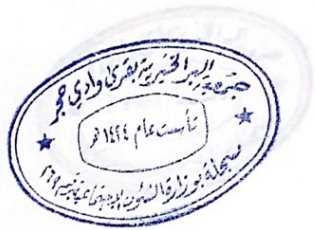 جمعية البر الخيرية بقرى وادي حجر
تأسست عام ١٤٢٤ هـ
مسجلة بوزارة الشئون الاجتماعية برقم